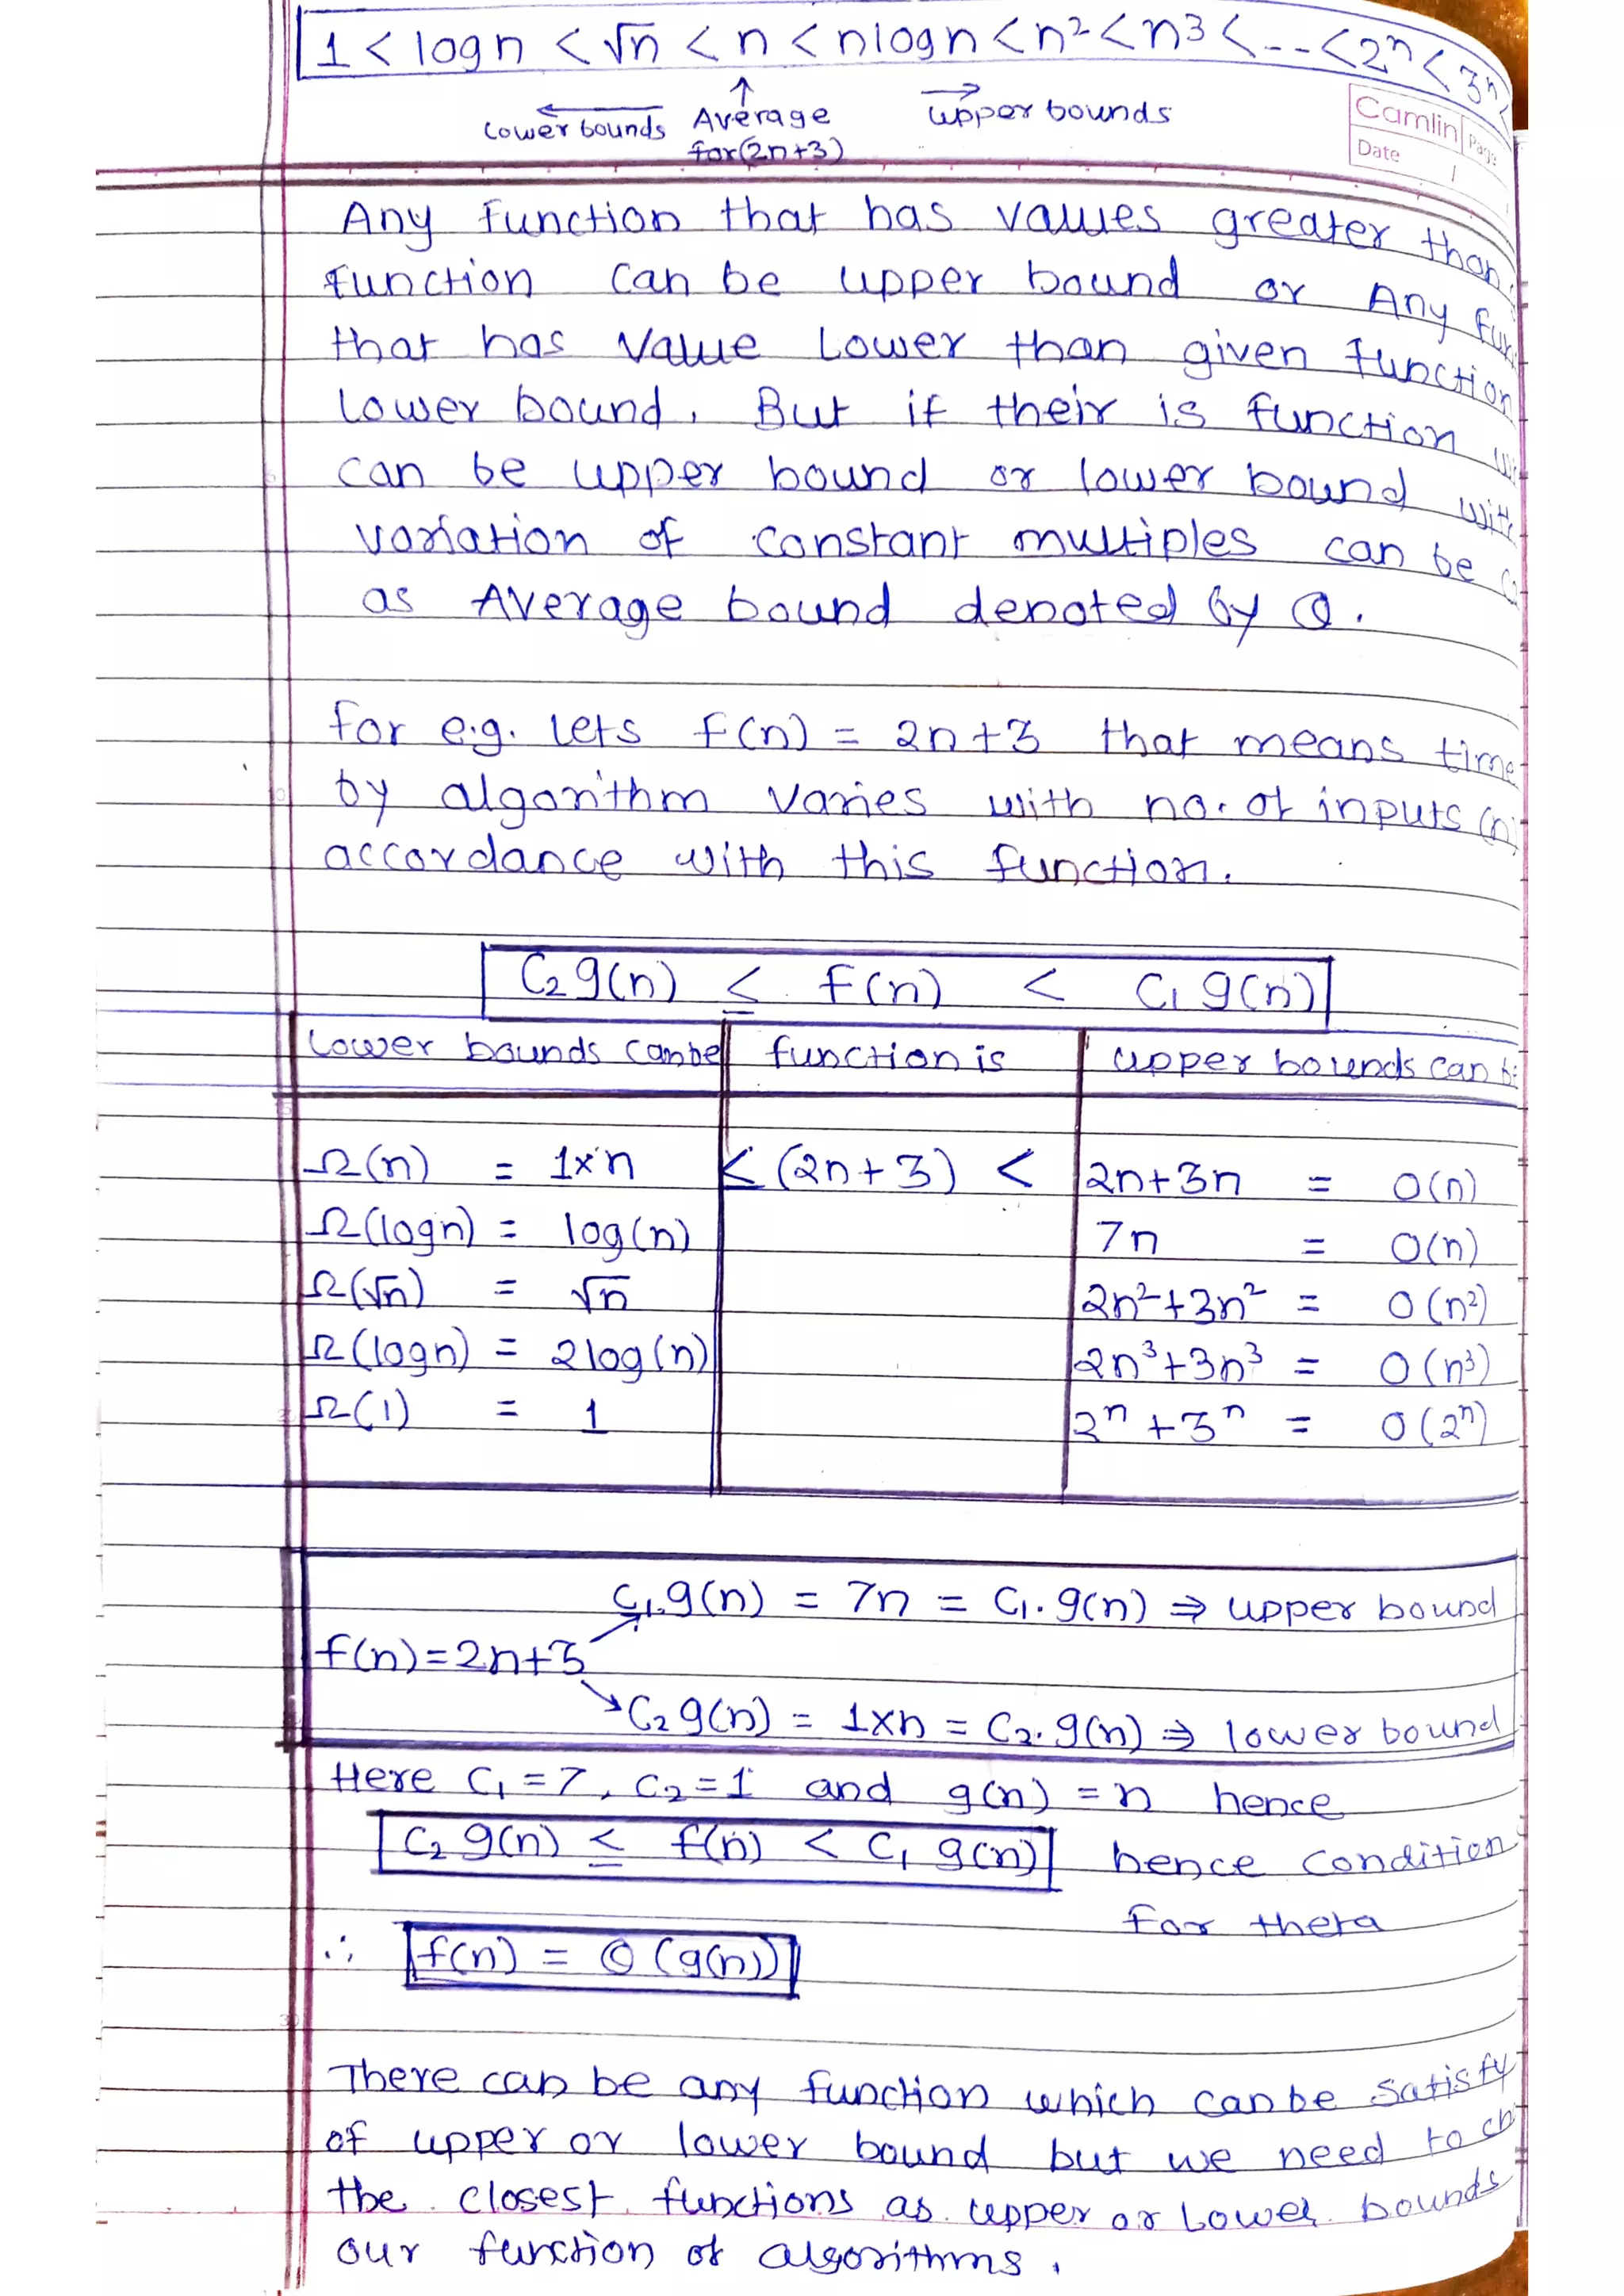 1 < logn < √n < n < nlogn < n² < n³ < -- < 2ⁿ < 3ⁿ
Lower bounds Average upper bounds
for(2n+3)
Camlin Page
Date /
Any function that has values greater than
function can be upper bound or Any
that has value Lower than given function
lower bound. But if their is function
can be upper bound or lower bound with
variation of constant multiples can be
as Average bound denoted by Θ.
for e.g. lets f(n) = 2n+3 that means time
by algorithm varies with no. of inputs (n)
accordance with this function.
C₂g(n) ≤ f(n) < C₁ g(n)
Lower bounds can be function is upper bounds can be
Ω(n) = 1×n ≤ (2n+3) < 2n+3n = O(n)
Ω(logn) = log(n) 7n = O(n)
Ω(√n) = √n 2n²+3n² = O(n²)
Ω(logn) = 2log(n) 2n³+3n³ = O(n³)
Ω(1) = 1 2ⁿ+3ⁿ = O(2ⁿ)
C₁.g(n) = 7n = C₁.g(n) ⇒ upper bound
f(n)=2n+3
C₂g(n) = 1×n = C₂.g(n) ⇒ lower bound
Here C₁=7, C₂=1 and g(n) = n hence
C₂ g(n) ≤ f(n) < C₁ g(n) hence condition
for theta
∴ f(n) = Θ(g(n))
There can be any function which can be satisfy
of upper or lower bound but we need to
the closest functions as upper or Lower bounds
our function of algorithms.